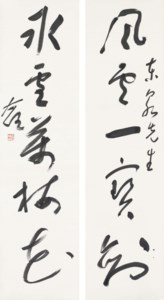 東泉先生
風雲一寶劍
冰雪萬梅花